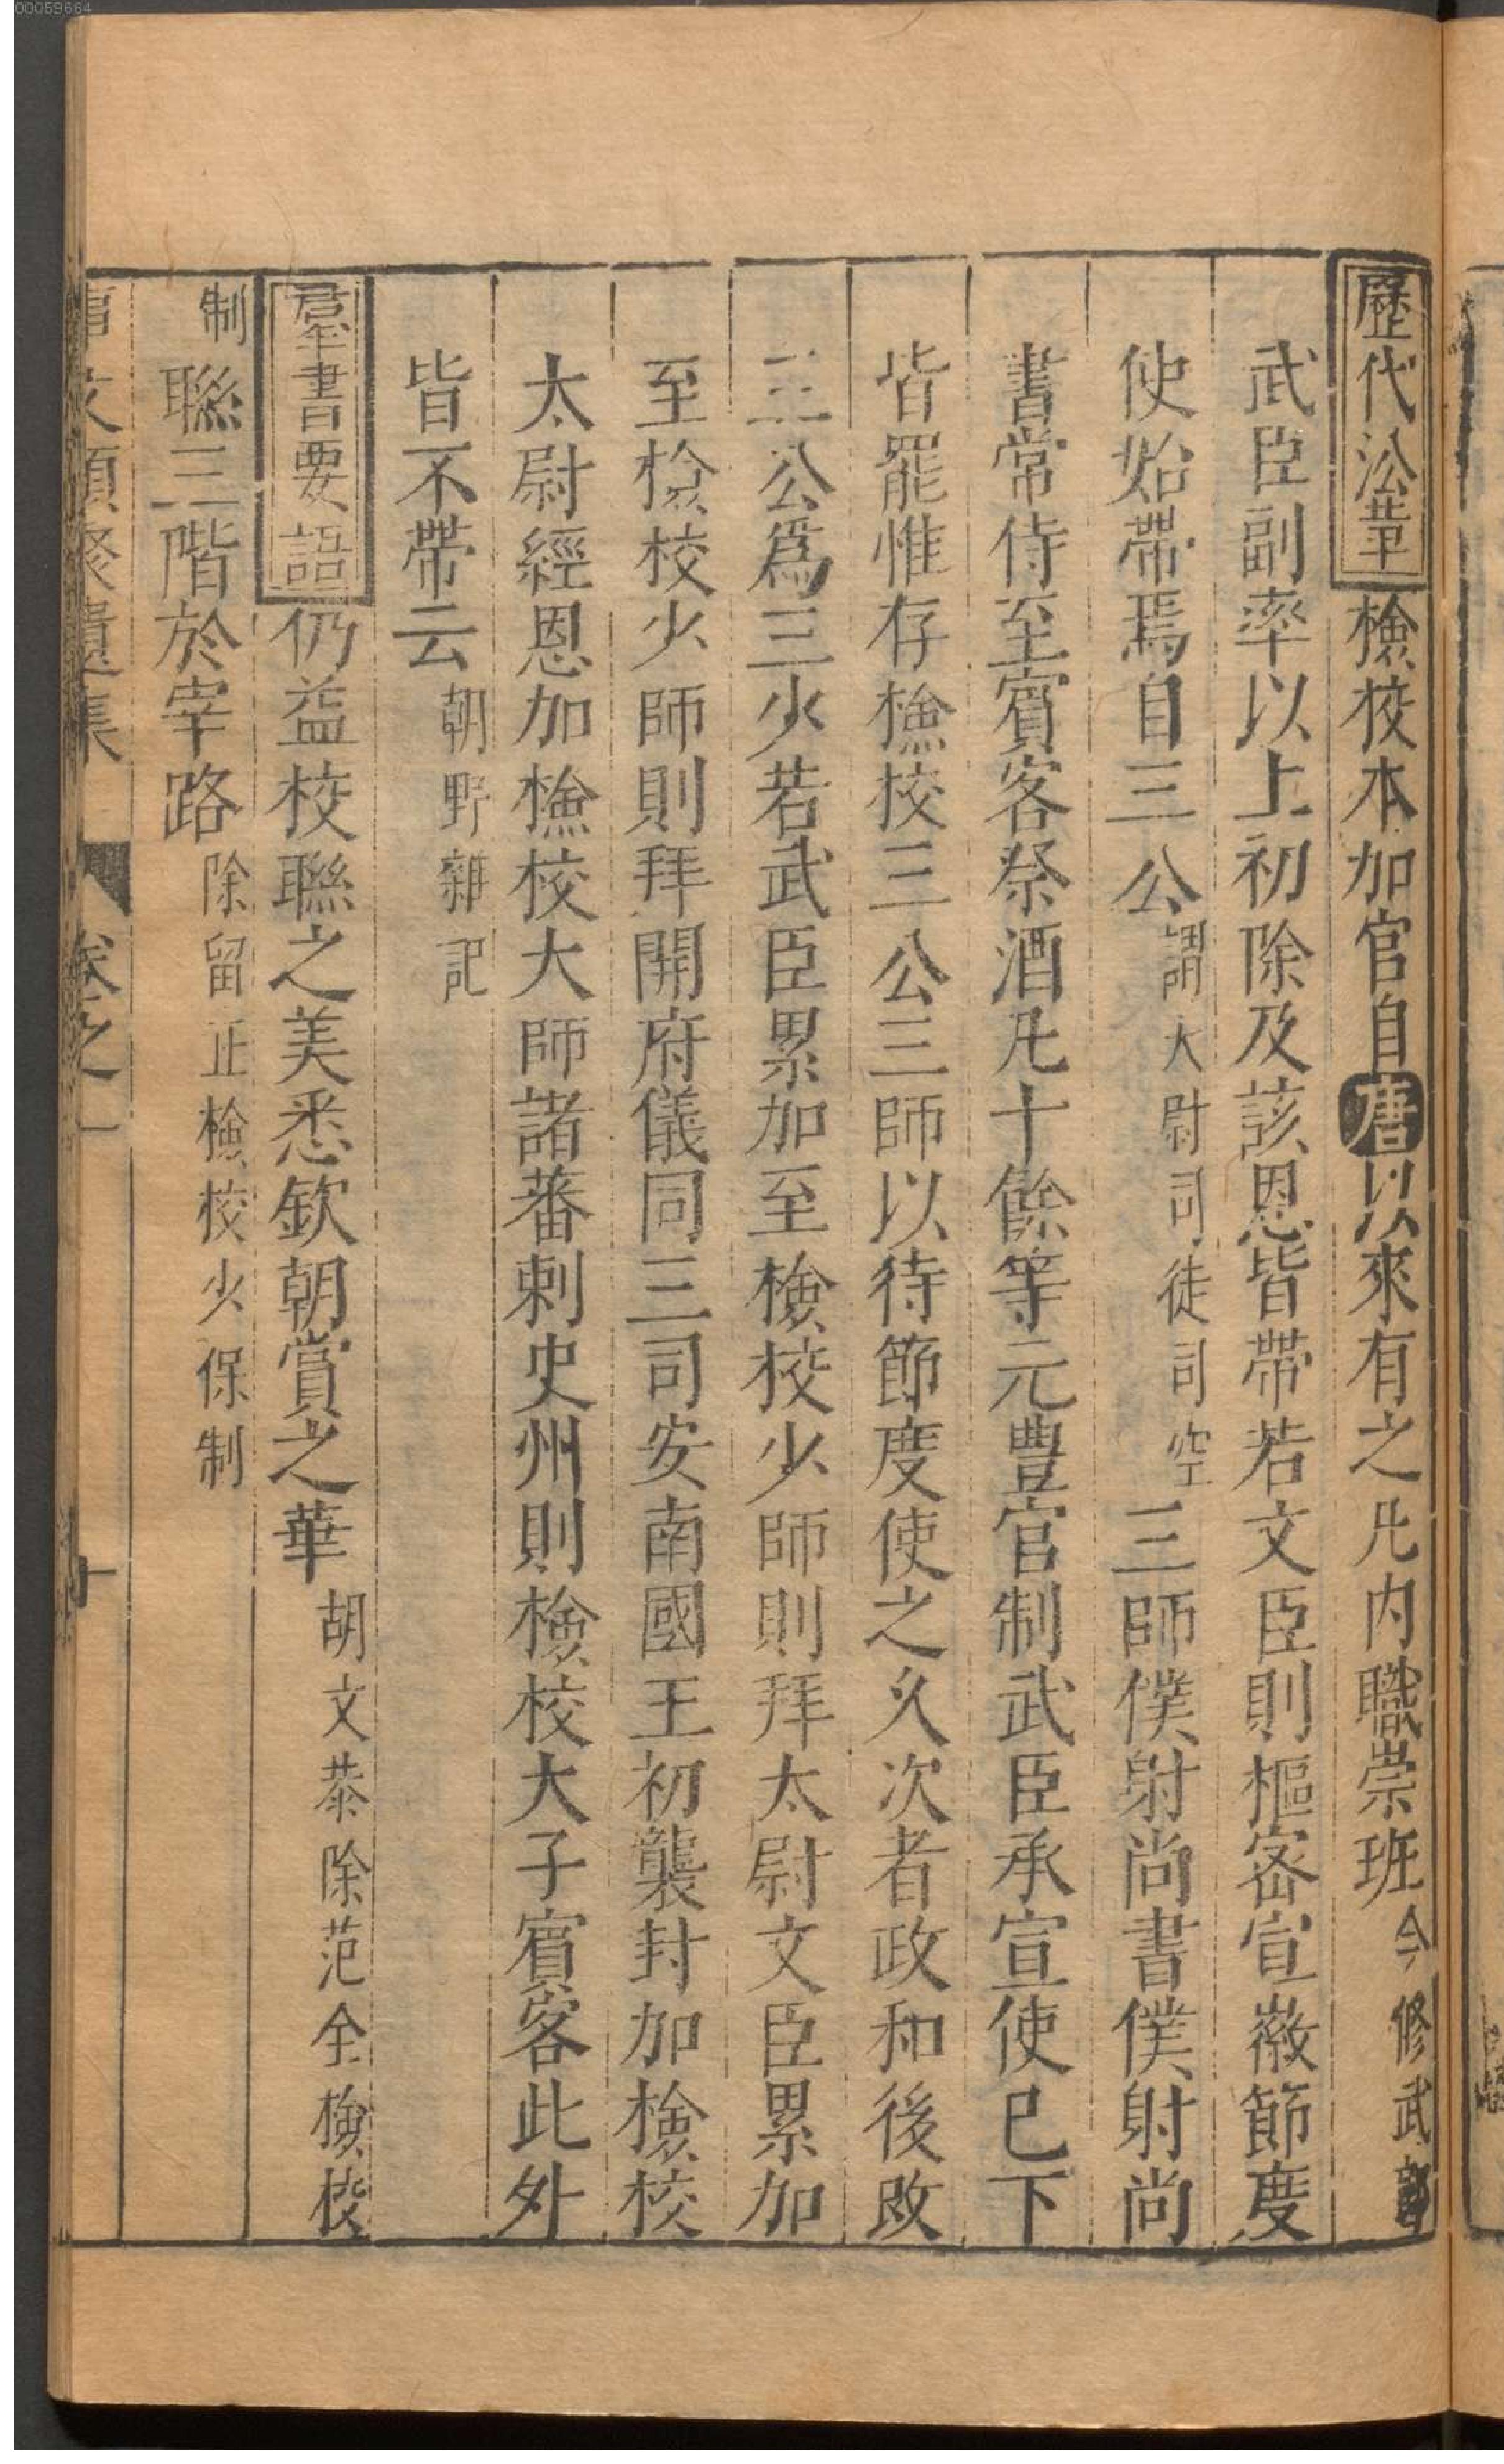 00059664
歷代沿革檢校本加官自唐以來有之凡内職崇班今修武郎
武臣副率以上初除及該恩皆帶若文臣則樞密宣徽節度
使始帶焉自三公謂大尉司徒司空三師僕射尚書僕射尚
書常侍至賓客祭酒凡十餘等元豐官制武臣承宣使已下
皆罷惟存撿校三公三師以待節度使之久次者政和後改
三公爲三少若武臣累加至檢校少師則拜太尉文臣累加
至檢校少師則拜開府儀同三司安南國王初襲封加檢校
太尉經恩加撿校大師諸蕃刺史州則檢校大子賓客此外
皆不帶云朝野雜記
羣書要語仍益校聯之美悉欽朝賞之華胡文恭除范全檢校
制聮三階於宰路除留正檢校少保制
事文類聚遺集 卷之一 十